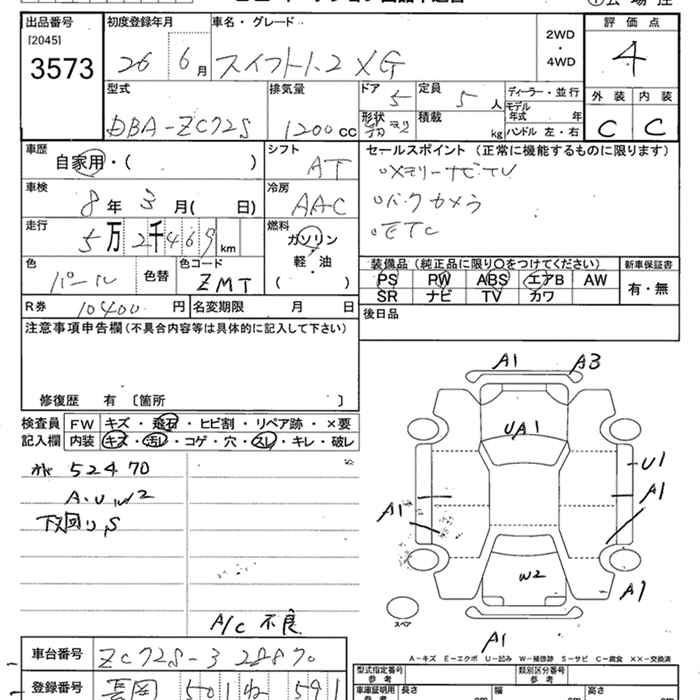 出品番号 [2045] 3573
初度登録年月 26 6月
車名・グレード スイフト1.2 XG
2WD・4WD
評価点 4
外装 C 内装 C
型式 DBA-ZC72S
排気量 1200cc
ドア 5
定員 5人
ディーラー・並行
形状
積載 kg
モデル年式 年
ハンドル 左・右
車歴 自家用・( )
シフト AT
セールスポイント (正常に機能するものに限ります)
○メモリーナビTV
○バックカメラ
○ETC
車検 8年3月( 日)
冷房 AAC
走行 5万2千469km
燃料 ガソリン 軽・油 ( )
色 パール
色替
色コード ZMT
装備品 (純正品に限り○をつけてください)
新車保証書 有・無
PS PW ABS エアB AW
SR ナビ TV カワ
R券 10400円
名変期限 月 日
後日品
注意事項申告欄 (不具合内容等は具体的に記入して下さい)
修復歴 有 〔箇所 〕
検査員記入欄
FW キズ・飛石・ヒビ割・リペア跡・×要
内装 キズ・汚レ・コゲ・穴・スレ・キレ・破レ
52470
A.U W2
下回り,S
A/C 不良
A1 A3
UA1
U1
A1
A1
W2
A1
A1
スペア
A-キズ E-エクボ U-凹み W-補修跡 S-サビ C-腐食 ××-交換済
車台番号 ZC72S-3
登録番号 長岡 501 ね 591
型式指定番号 参考
類別区分番号 参考
車庫証明用 参考 長さ cm 幅 cm 高さ cm